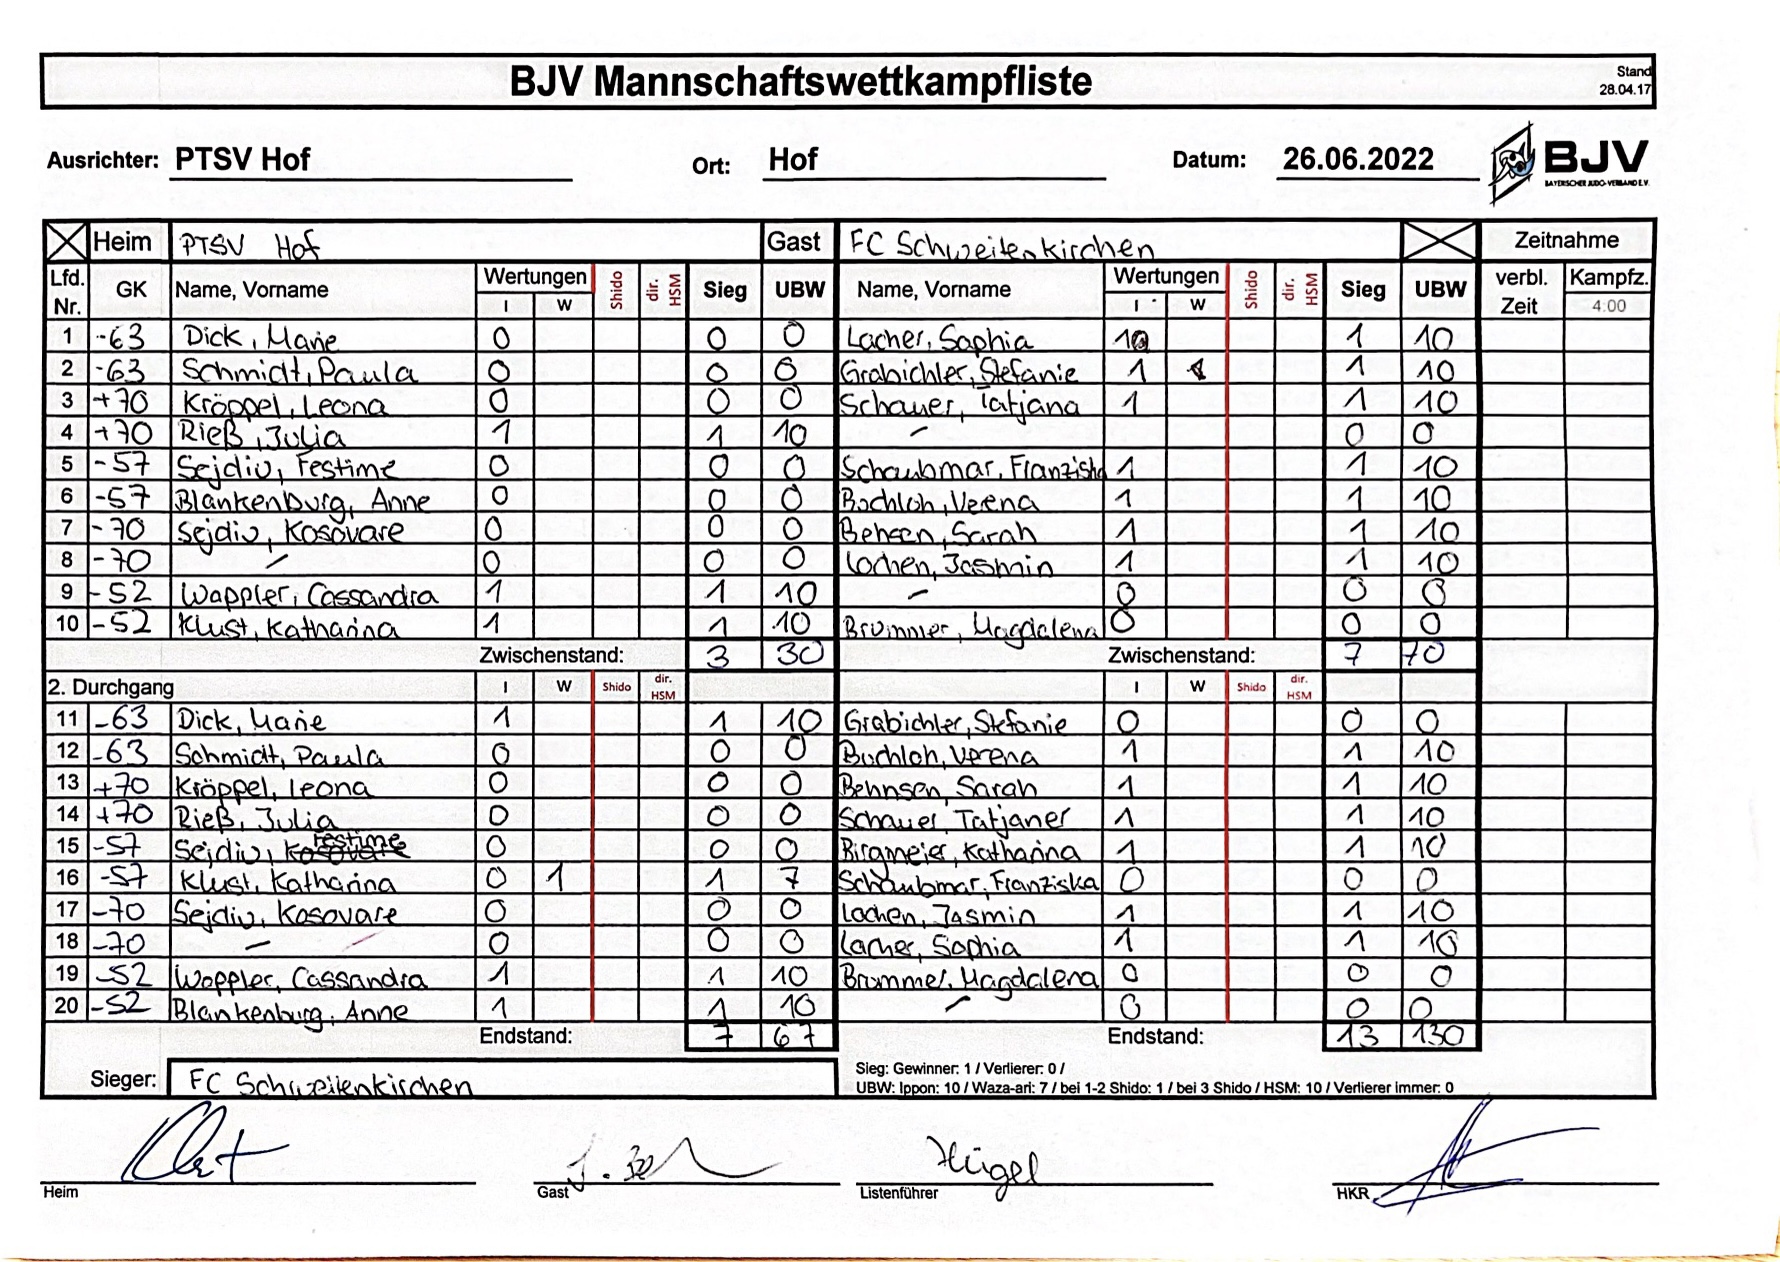 BJV Mannschaftswettkampfliste
Stand
28.04.17
Ausrichter: PTSV Hof Ort: Hof Datum: 26.06.2022
BJV
BAYERISCHER JUDO-VERBAND E.V.
Heim PTSV Hof Gast FC Schweitenkirchen Zeitnahme
Lfd. Nr. GK Name, Vorname Wertungen I W Shido dir. HSM Sieg UBW Name, Vorname Wertungen I W Shido dir. HSM Sieg UBW verbl. Zeit Kampfz. 4:00
1 -63 Dick, Marie 0 0 0 Lacher, Sophia 1 1 10
2 -63 Schmidt, Paula 0 0 0 Grabichler, Stefanie 1 1 10
3 +70 Kröppel, Leona 0 0 0 Schauer, Tatjana 1 1 10
4 +70 Rieß, Julia 1 1 10 - 0 0
5 -57 Sejdiu, Festime 0 0 0 Schaubmar, Franziska 1 1 10
6 -57 Blankenburg, Anne 0 0 0 Buchloh, Verena 1 1 10
7 -70 Sejdiu, Kosovare 0 0 0 Behsen, Sarah 1 1 10
8 -70 - 0 0 0 Lochen, Jasmin 1 1 10
9 -52 Wappler, Cassandra 1 1 10 - 0 0 0
10 -52 Klust, Katharina 1 1 10 Brummer, Magdalena 0 0 0
Zwischenstand: 3 30 Zwischenstand: 7 70
2. Durchgang I W Shido dir. HSM I W Shido dir. HSM
11 -63 Dick, Marie 1 1 10 Grabichler, Stefanie 0 0 0
12 -63 Schmidt, Paula 0 0 0 Buchloh, Verena 1 1 10
13 +70 Kröppel, Leona 0 0 0 Behnsen, Sarah 1 1 10
14 +70 Rieß, Julia 0 0 0 Schauer, Tatjaner 1 1 10
15 -57 Sejdiu, Kosovare Festime 0 0 0 Birgmeier, Katharina 1 1 10
16 -57 Klust, Katharina 0 1 1 7 Schaubmar, Franziska 0 0 0
17 -70 Sejdiu, Kosovare 0 0 0 Lochen, Jasmin 1 1 10
18 -70 - 0 0 0 Lacher, Sophia 1 1 10
19 -52 Wappler, Cassandra 1 1 10 Brummer, Magdalena 0 0 0
20 -52 Blankenburg, Anne 1 1 10 - 0 0 0
Endstand: 7 67 Endstand: 13 130
Sieger: FC Schweitenkirchen
Sieg: Gewinner: 1 / Verlierer: 0 /
UBW: Ippon: 10 / Waza-ari: 7 / bei 1-2 Shido: 1 / bei 3 Shido / HSM: 10 / Verlierer immer: 0
Hügel
Heim Gast Listenführer HKR